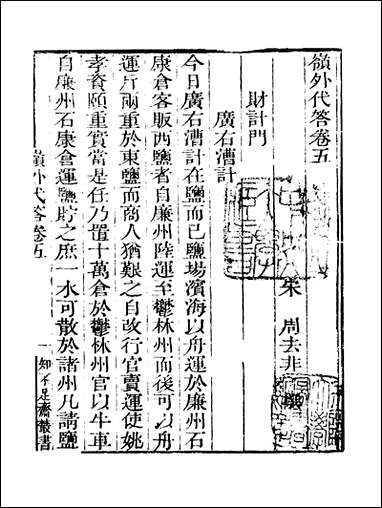 嶺外代答卷五
宋 周去非 撰
財計門
廣右漕計
今日廣右漕計在鹽而已鹽場濱海以舟運於廉州石
康倉客販西鹽者自廉州陸運至鬱林州而後可以舟
運斤兩重於東鹽而商人猶艱之自改行官賣運使姚
孝資頤重實當是任乃置十萬倉於鬱林州官以牛車
自廉州石康倉運鹽貯之庶一水可散於諸州凡請鹽
嶺外代答卷五
一
知不足齋叢書